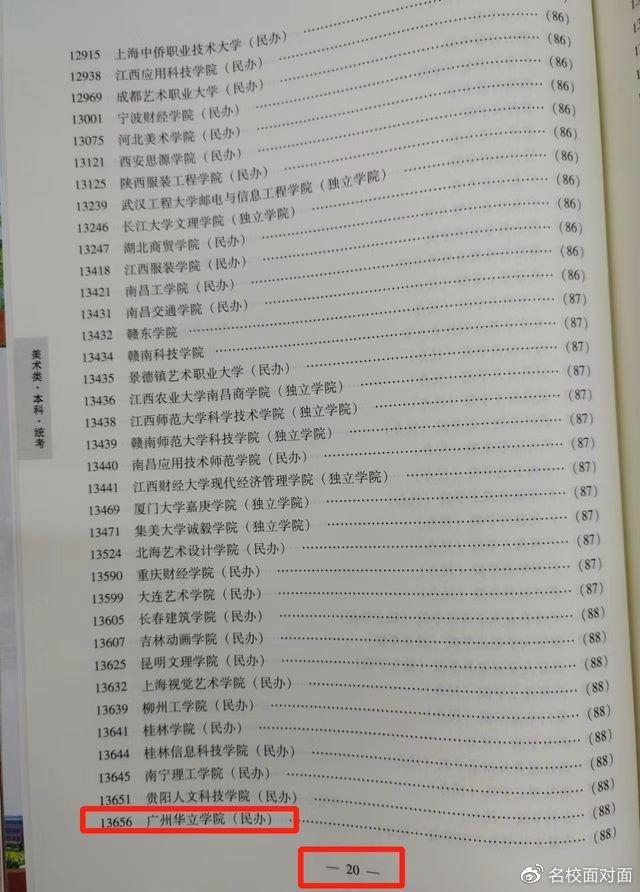 12915 上海中侨职业技术大学（民办） (86)
12938 江西应用科技学院（民办） (86)
12969 成都艺术职业大学（民办） (86)
13001 宁波财经学院（民办） (86)
13075 河北美术学院（民办） (86)
13121 西安思源学院（民办） (86)
13125 陕西服装工程学院（民办） (86)
13239 武汉工程大学邮电与信息工程学院（独立学院） (86)
13246 长江大学文理学院（独立学院） (86)
13247 湖北商贸学院（民办） (86)
13418 江西服装学院（民办） (86)
13421 南昌工学院（民办） (86)
13431 南昌交通学院（民办） (87)
13432 赣东学院 (87)
13434 赣南科技学院 (87)
13435 景德镇艺术职业大学（民办） (87)
13436 江西农业大学南昌商学院（独立学院） (87)
13438 江西师范大学科学技术学院（独立学院） (87)
13439 赣南师范大学科技学院（独立学院） (87)
13440 南昌应用技术师范学院（民办） (87)
13441 江西财经大学现代经济管理学院（独立学院） (87)
13469 厦门大学嘉庚学院（独立学院） (87)
13471 集美大学诚毅学院（独立学院） (87)
13524 北海艺术设计学院（民办） (87)
13590 重庆财经学院（民办） (87)
13599 大连艺术学院（民办） (87)
13605 长春建筑学院（民办） (88)
13607 吉林动画学院（民办） (88)
13625 昆明文理学院（民办） (88)
13632 上海视觉艺术学院（民办） (88)
13639 柳州工学院（民办） (88)
13641 桂林学院（民办） (88)
13644 桂林信息科技学院（民办） (88)
13645 南宁理工学院（民办） (88)
13651 贵阳人文科技学院（民办） (88)
13656 广州华立学院（民办） (88)
美术类·本科·统考
— 20 —
@名校面对面